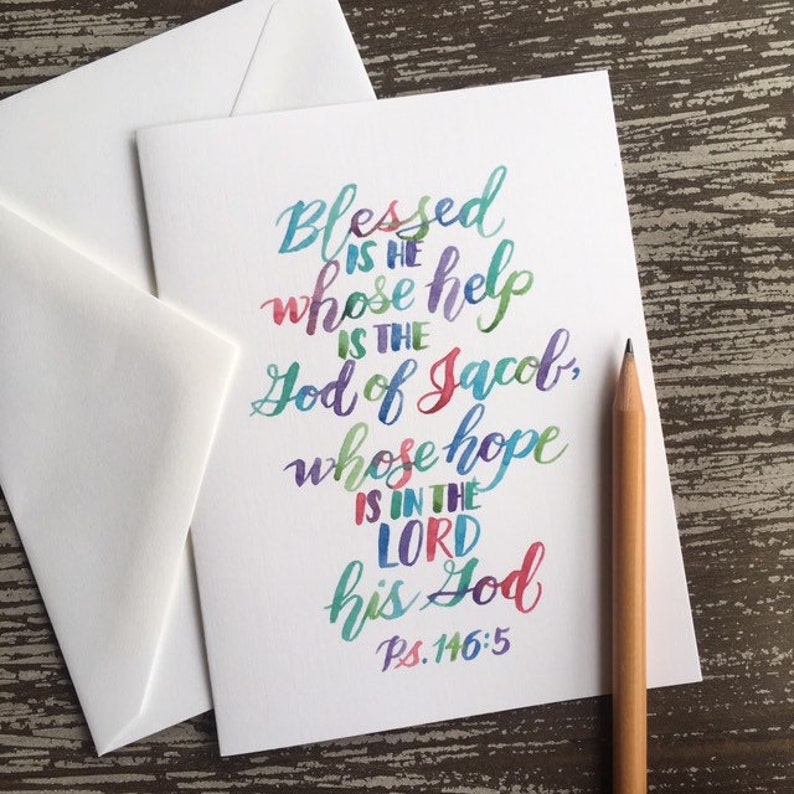 Blessed
IS HE
whose help
IS THE
God of Jacob,
whose hope
IS IN THE
LORD
his God
Ps. 146:5